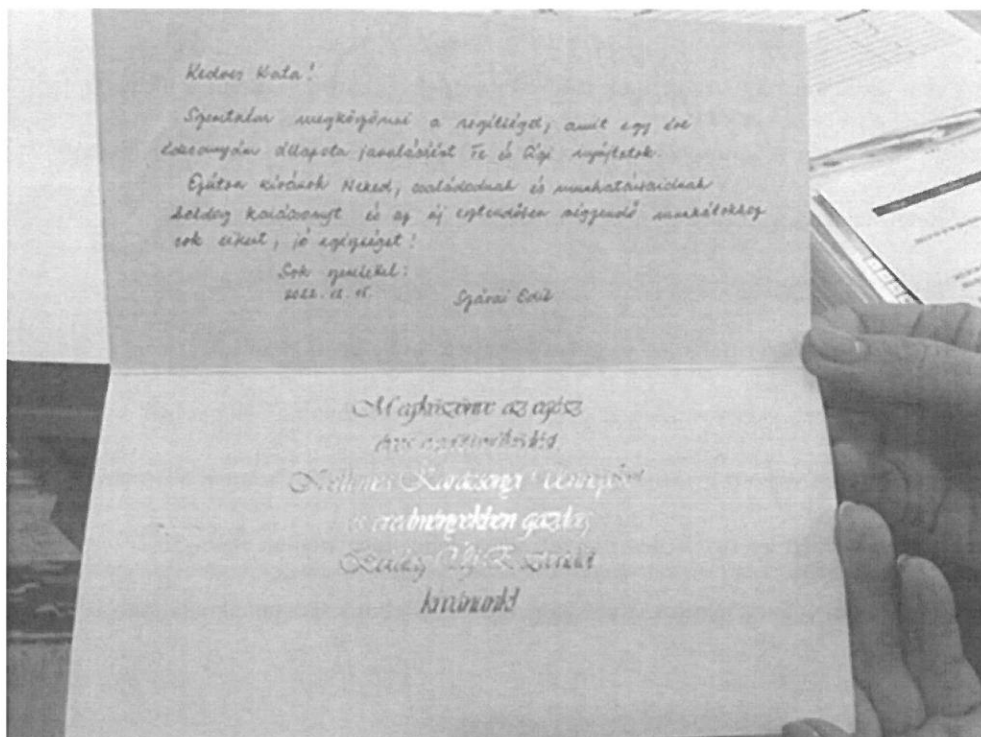 Kedves Kata!
Szeretném megköszönni a segítséget, amit egy éve
édesanyám állapota javulásáért Te és Ági nyújtottatok.
Ezúton kívánok Neked, családodnak és munkatársaidnak
boldog karácsonyt és az új esztendőben végzendő munkátokhoz
sok sikert, jó egészséget!
Sok szeretettel:
2022. 12. 15. Edit
Megköszönve az egész
éves
Kellemes Karácsonyi Ünnepeket
és eredményekben gazdag
Boldog Új Esztendőt
kívánunk!